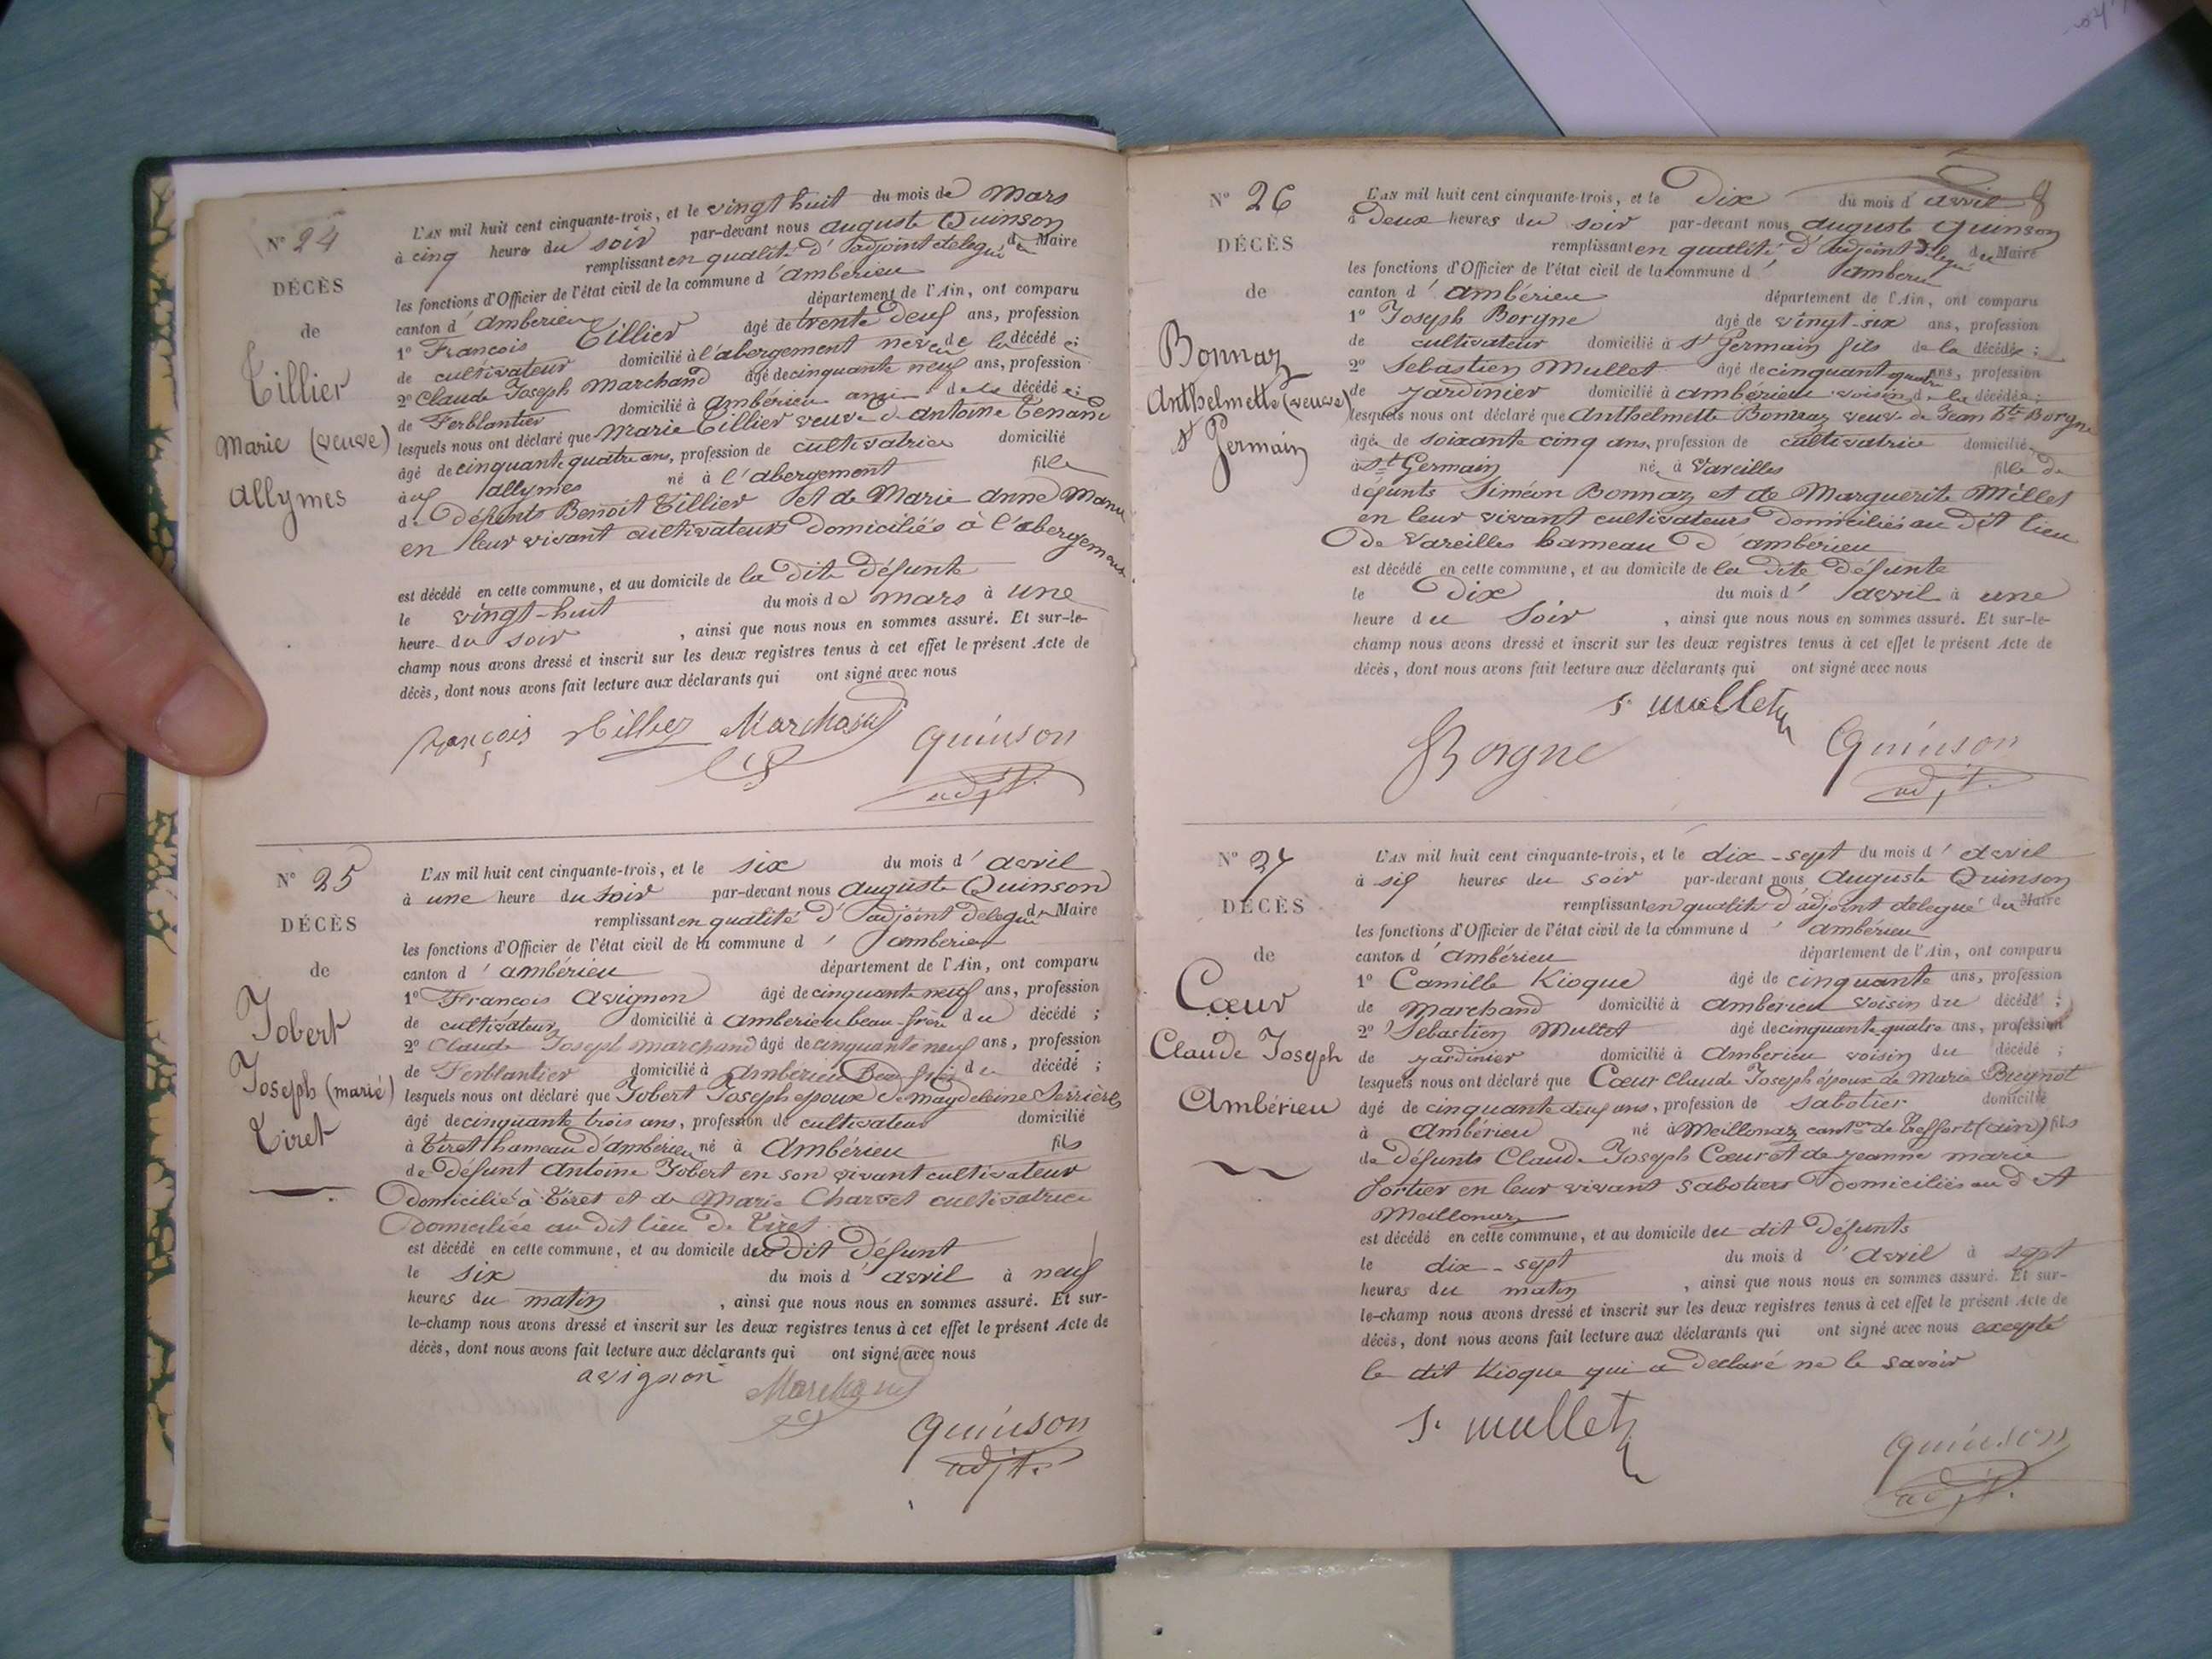 N° 24
DÉCÈS
de
Tillier
Marie (veuve)
allymes
L'AN mil huit cent cinquante-trois, et le vingt huit du mois de mars
à cinq heure du soir par-devant nous auguste Quinson
remplissant en qualité d'adjoint delegué du Maire
les fonctions d'Officier de l'état civil de la commune d'ambérieu
canton d'amberieu département de l'Ain, ont comparu
1° François Tillier âgé de trente deux ans, profession
de cultivateur domicilié à l'abergement neveu de la décédé e;
2° Claude Joseph Marchand âgé de cinquante neuf ans, profession
de Ferblantier domicilié à amberieu ami de la décédé e;
lesquels nous ont déclaré que Marie Tillier veuve d'antoine Tenand
âgé de cinquante quatre ans, profession de cultivatrice domicilié
aux allymes né à l'abergement fille
de Défunts Benoit Tillier et de Marie anne
en leur vivant cultivateurs Domiciliés à l'abergement
est décédé en cette commune, et au domicile de la dite défunte
le vingt-huit du mois de mars à une
heure du soir, ainsi que nous nous en sommes assuré. Et sur-le-
champ nous avons dressé et inscrit sur les deux registres tenus à cet effet le présent Acte de
décès, dont nous avons fait lecture aux déclarants qui ont signé avec nous
françois tillier Marchand quinson
adjt.
N° 25
DÉCÈS
de
Jobert
Joseph (marié)
Tiret
L'AN mil huit cent cinquante-trois, et le six du mois d'avril
à une heure du soir par-devant nous auguste Quinson
remplissant en qualité d'adjoint delegué du Maire
les fonctions d'Officier de l'état civil de la commune d'amberieu
canton d'ambérieu département de l'Ain, ont comparu
1° François avignon âgé de cinquante neuf ans, profession
de cultivateur domicilié à amberieu beau-frère du décédé;
2° Claude Joseph marchand âgé de cinquante neuf ans, profession
de Ferblantier domicilié à ambérieu Beau frère du décédé;
lesquels nous ont déclaré que Jobert Joseph époux de magdeleine Serrières
âgé de cinquante trois ans, profession de cultivateur domicilié
à Tiret hameau d'amberieu né à Ambérieu fils
de défunt antoine Jobert en son vivant cultivateur
Domicilié à Tiret et de Marie Charvet cultivatrice
Domiciliée au dit lieu de Tiret
est décédé en cette commune, et au domicile du Dit Défunt
le six du mois d'avril à neuf
heures du matin, ainsi que nous nous en sommes assuré. Et sur-
le-champ nous avons dressé et inscrit sur les deux registres tenus à cet effet le présent Acte de
décès, dont nous avons fait lecture aux déclarants qui ont signé avec nous
avignon Marchand
quinson
adjt.
N° 26
DÉCÈS
de
Bonnaz
Anthelmette (veuve)
St Germain
L'AN mil huit cent cinquante-trois, et le Dix du mois d'avril
à Deux heures du soir par-devant nous auguste quinson
remplissant en qualité d'adjoint delegué du Maire
les fonctions d'Officier de l'état civil de la commune d'amberieu
canton d'ambérieu département de l'Ain, ont comparu
1° Joseph Borgne âgé de vingt-six ans, profession
de cultivateur domicilié à St Germain fils de la décédée;
2° Sebastien Mullet âgé de cinquant quatre ans, profession
de jardinier domicilié à ambérieu voisin de la décédée;
lesquels nous ont déclaré que Anthelmette Bonnaz veuve de Jean Bte Borgne
âgé de soixante cinq ans, profession de cultivatrice domicilié
à St Germain né à Vareilles fille de
défunts Siméon Bonnaz et de Marguerite Millet
en leur vivant cultivateurs Domiciliés au Dit lieu
De Vareilles hameau D'ambérieu
est décédé en cette commune, et au domicile de la Dite Défunte
le Dix du mois d'avril à une
heure du Soir, ainsi que nous nous en sommes assuré. Et sur-le-
champ nous avons dressé et inscrit sur les deux registres tenus à cet effet le présent Acte de
décès, dont nous avons fait lecture aux déclarants qui ont signé avec nous
s. mullet
Borgne Quinson
adjt.
N° 27
DÉCÈS
de
Cœur
Claude Joseph
Ambérieu
L'AN mil huit cent cinquante-trois, et le dix-sept du mois d'avril
à six heures du soir par-devant nous Auguste Quinson
remplissant en qualité d'adjoint delegué du Maire
les fonctions d'Officier de l'état civil de la commune d'ambérieu
canton d'ambérieu département de l'Ain, ont comparu
1° Camille Kioque âgé de cinquante ans, profession
de Marchand domicilié à amberieu voisin du décédé;
2° Sebastien Mullet âgé de cinquante quatre ans, profession
de jardinier domicilié à Amberieu voisin du décédé;
lesquels nous ont déclaré que Cœur Claude Joseph époux de Marie Breynot
âgé de cinquante deux ans, profession de sabotier domicilié
à Ambérieu né à Meillonaz canton de Treffort (ain) fils
de défunts Claude Joseph Cœur et de jeanne marie
fortier en leur vivant sabotiers domiciliés au dit
Meillonaz
est décédé en cette commune, et au domicile du dit défunts
le dix-sept du mois d'avril à sept
heures du matin, ainsi que nous nous en sommes assuré. Et sur-
le-champ nous avons dressé et inscrit sur les deux registres tenus à cet effet le présent Acte de
décès, dont nous avons fait lecture aux déclarants qui ont signé avec nous excepté
le dit Kioque qui a declaré ne le savoir
s. mullet
quinson
adjt.